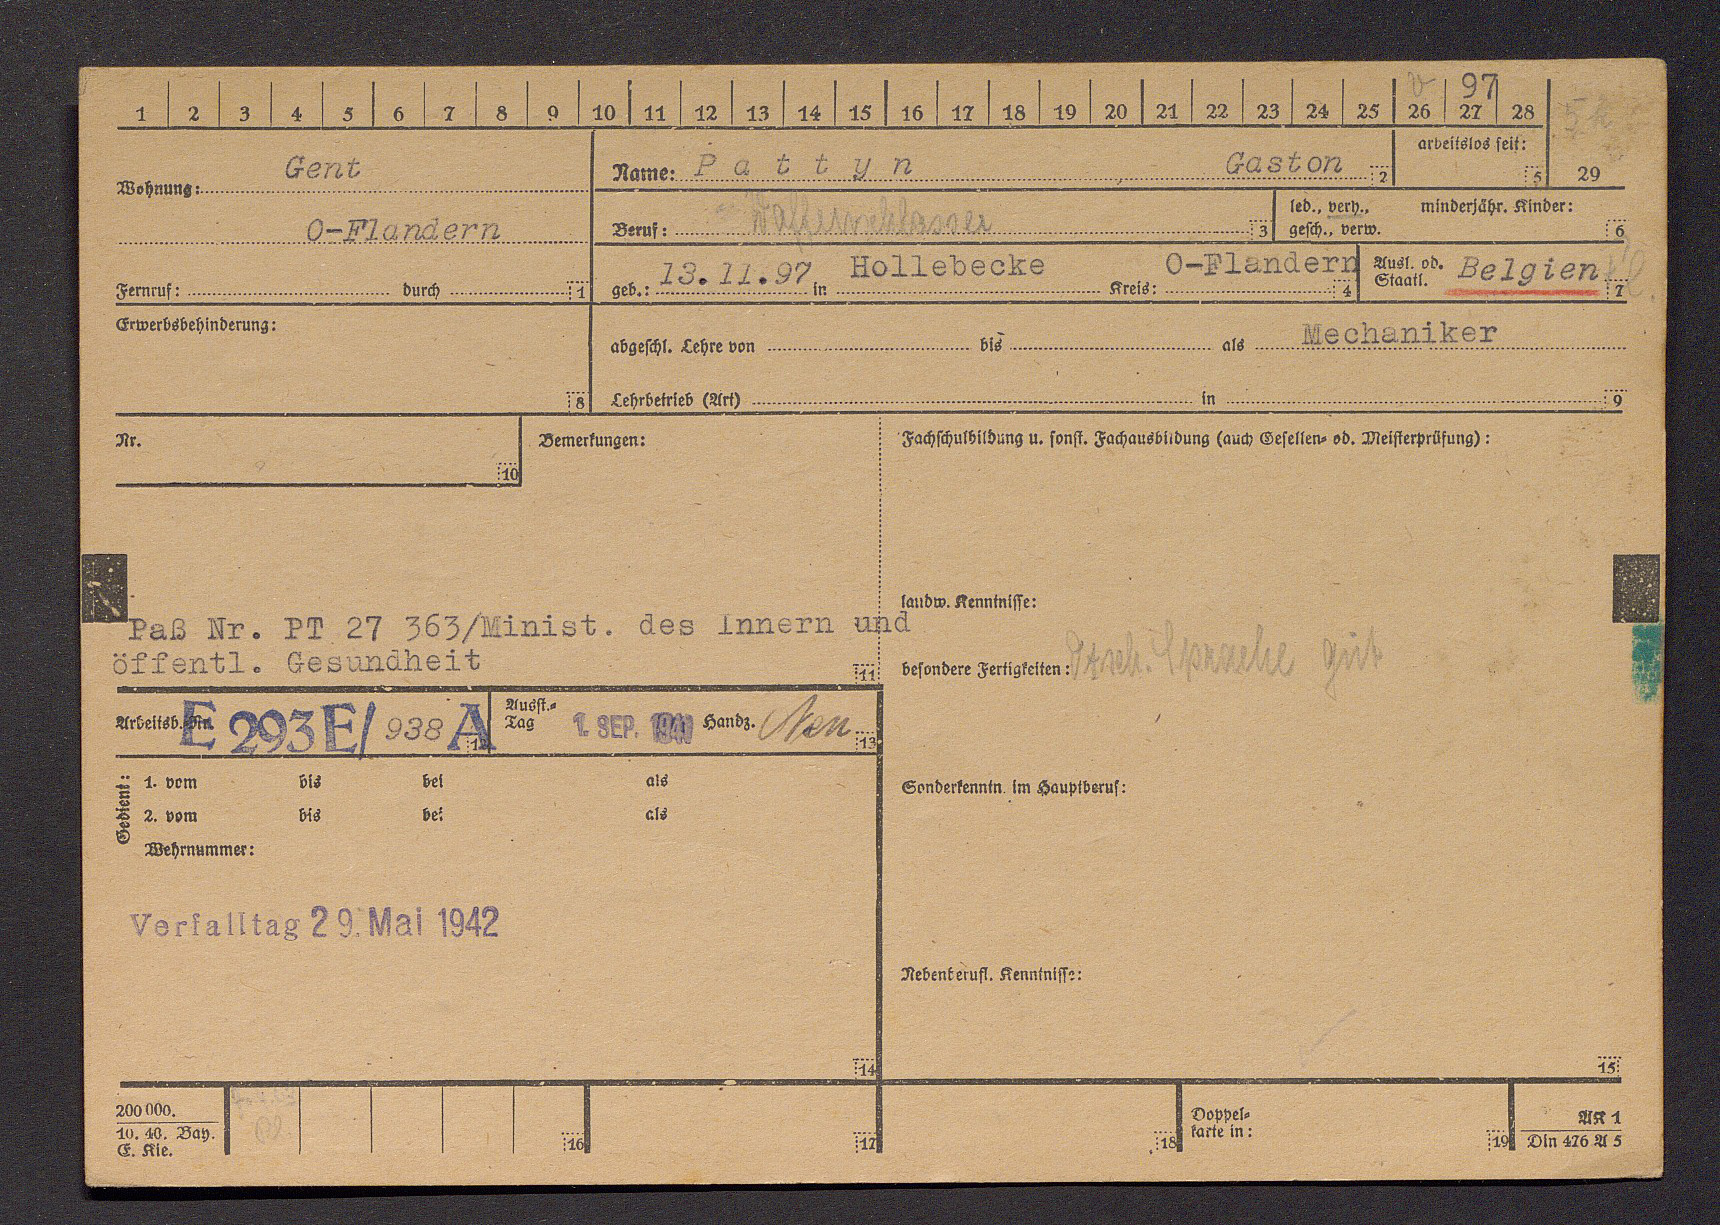 97
1 2 3 4 5 6 7 8 9 10 11 12 13 14 15 16 17 18 19 20 21 22 23 24 25 26 27 28
Wohnung: Gent
O-Flandern
Fernruf: durch 1
Name: Pattyn, Gaston 2
arbeitslos seit: 5
29
Beruf: 3
led., verh., gesch., verw.
minderjähr. Kinder: 6
geb.: 13.11.97 in Hollebecke Kreis: O-Flandern 4
Ausl. od. Staatl. Belgien 7
Erwerbsbehinderung: 8
abgeschl. Lehre von bis als Mechaniker
Lehrbetrieb (Art) in 9
Nr. 10
Bemerkungen:
Paß Nr. PT 27 363/Minist. des Innern und
öffentl. Gesundheit 11
Fachschulbildung u. sonst. Fachausbildung (auch Gesellen- od. Meisterprüfung):
landw. Kenntnisse:
besondere Fertigkeiten: Dtsch. Sprache gut
Arbeitsb.-Nr. E 293E/ 938 A 12
Ausst.-Tag 1. SEP. 1941 Handz. 13
Gedient:
1. vom bis bei als
2. vom bis bei als
Wehrnummer:
Verfalltag 29. Mai 1942
14
Sonderkenntn. im Hauptberuf:
Nebenberufl. Kenntnisse:
15
200 000.
10. 40. Bay.
E. Kie.
16
17
18
Doppel-
karte in: 19
AK 1
Din 476 A 5